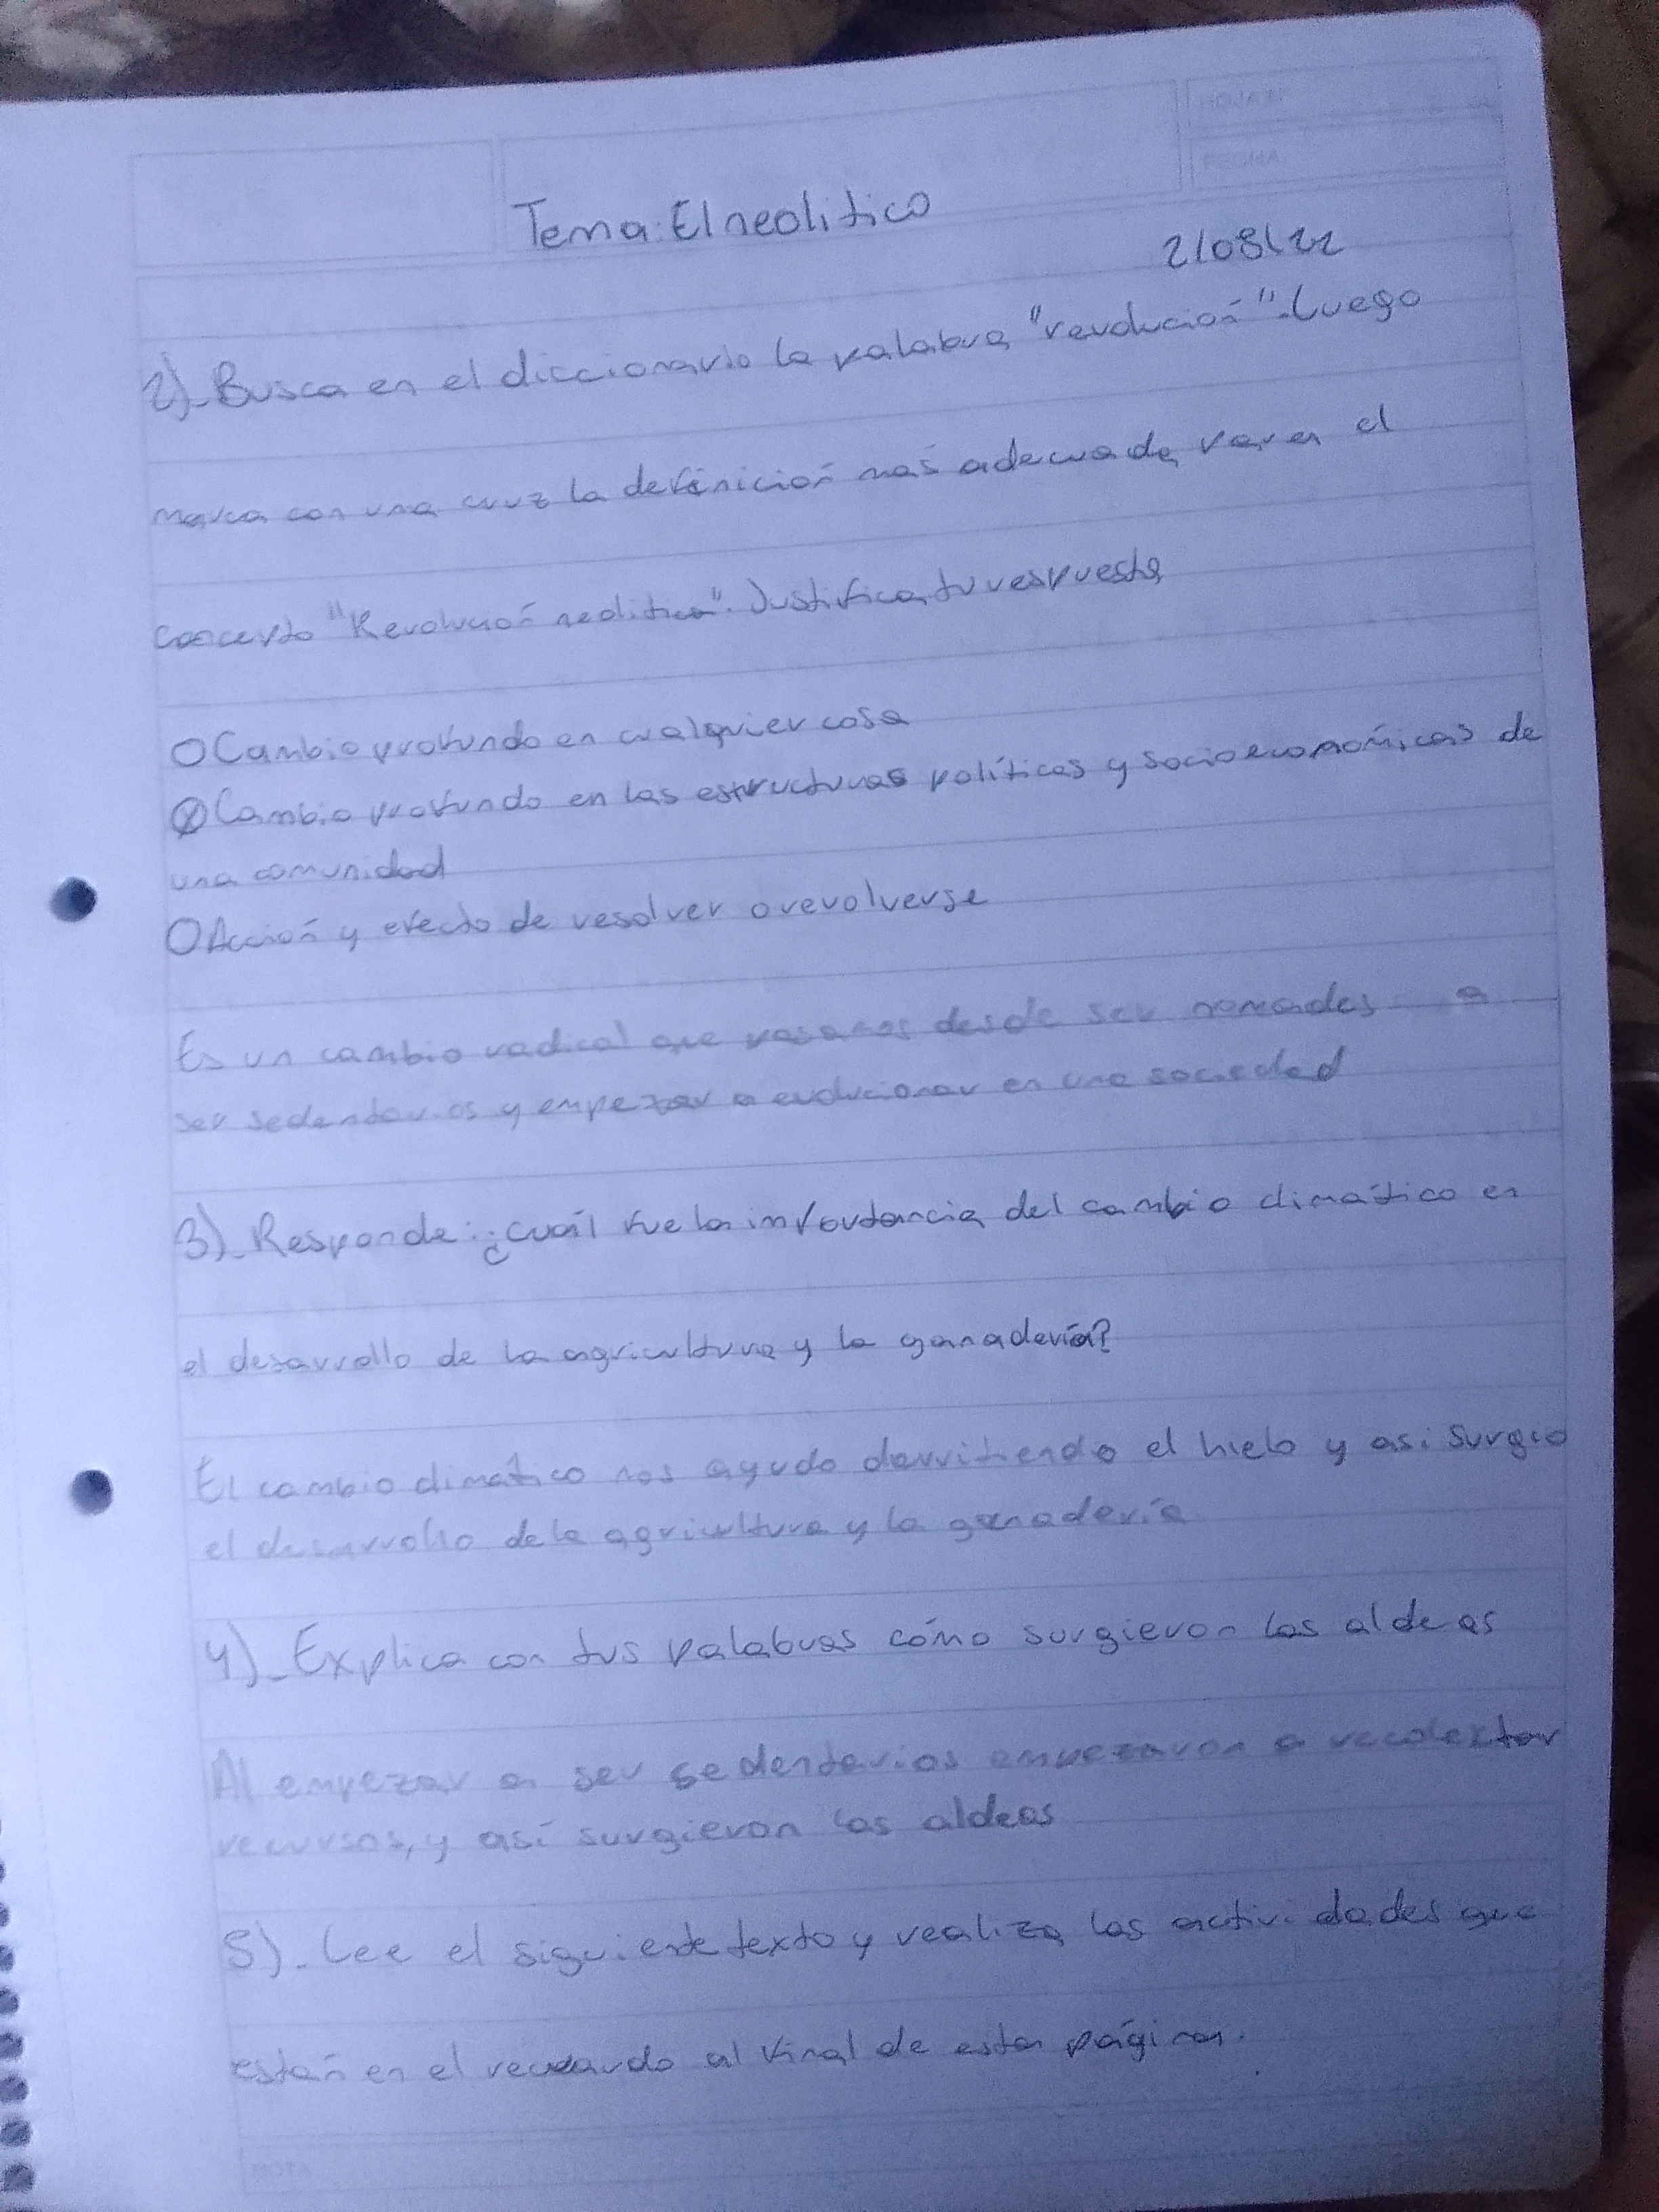 HOJA N°
FECHA
Tema: El neolitico
2/08/22
2)_Busca en el diccionario la palabra "revolución". Luego
marca con una cruz la definición más adecuada para el
concepto "Revolución neolitica". Justifica tu respuesta
O Cambio profundo en cualquier cosa
⊗ Cambio profundo en las estructuras políticas y socioeconómicas de
una comunidad
O Acción y efecto de resolver o revolverse
Es un cambio radical que pasamos desde ser nomades a
ser sedentarios y empezar a evolucionar en una sociedad
3)_Responde: ¿cuál fue la importancia del cambio climático en
el desarrollo de la agricultura y la ganadería?
El cambio climático nos ayudo derritiendo el hielo y asi surgio
el desarrollo de la agricultura y la ganadería
4)_Explica con tus palabras cómo surgieron las aldeas
Al empezar a ser sedentarios empezaron a recolectar
recursos, y así surgieron las aldeas
5)_Lee el siguiente texto y realiza las actividades que
están en el recuardo al final de esta página.
NOTA